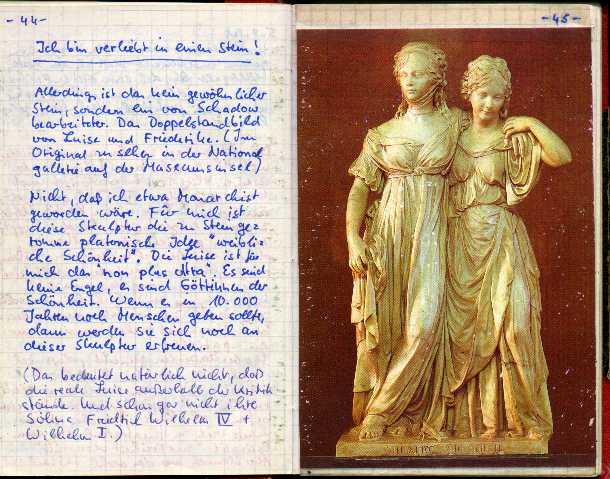 - 44 -
Ich bin verliebt in einen Stein!
Allerdings ist das kein gewöhnlicher
Stein, sondern ein von Schadow
bearbeiteter. Das Doppelstandbild
von Luise und Friederike. (Im
Original zu sehen in der National
gallerie auf der Museumsinsel)
Nicht, daß ich etwa Monarchist
geworden wäre. Für mich ist
diese Skulptur die zu Stein ge-
ronnene platonische Idee "weibli-
che Schönheit". Die Luise ist für
mich das "non plus ultra". Es sind
keine Engel, es sind Göttinnen der
Schönheit. Wenn es in 10.000
Jahren noch Menschen geben sollte,
dann werden sie sich noch an
dieser Skulptur erfreuen.
(Das bedeutet natürlich nicht, daß
die reale Luise außerhalb der Kritik
stände. Und schon gar nicht ihre
Söhne Friedrich Wilhelm IV +
Wilhelm I.)
- 45 -